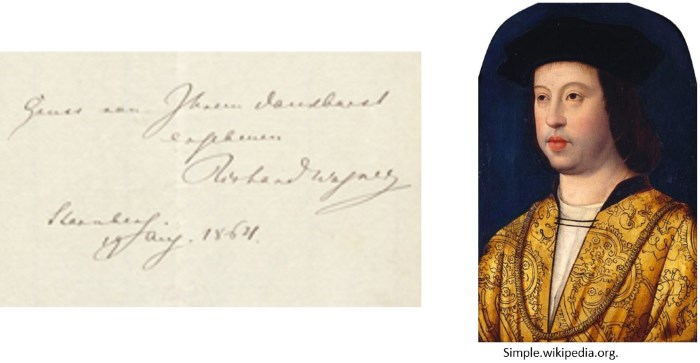 Gruss von Ihrem dankbarst
ergebenen
Richard Wagner
Starnberg.
19 Aug. 1864.
Simple.wikipedia.org.